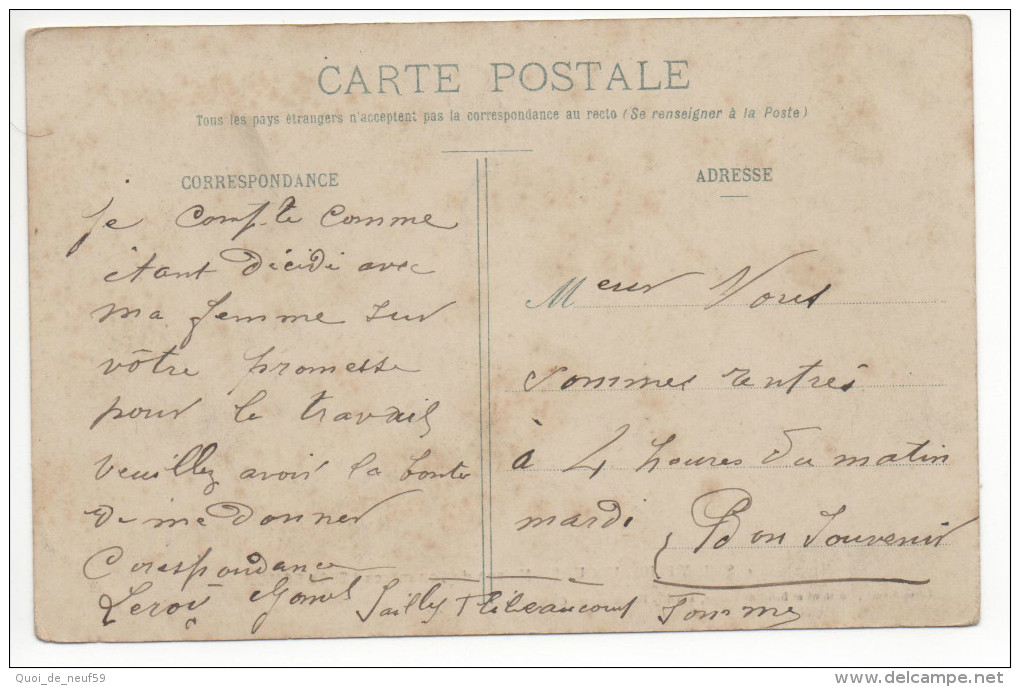 CARTE POSTALE
Tous les pays étrangers n'acceptent pas la correspondance au recto (Se renseigner à la Poste)
CORRESPONDANCE
Je compte comme
étant décidé avec
ma femme sur
vôtre promesse
pour le travail
veuillez avoir la bonte
de me donner
Corespondance
Leroy Sailly Flibeaucourt Somme
ADRESSE
Meur Nous
sommes rentrés
à 4 heures du matin
mardi Bon Souvenir
Quoi_de_neuf59
www.delcampe.net